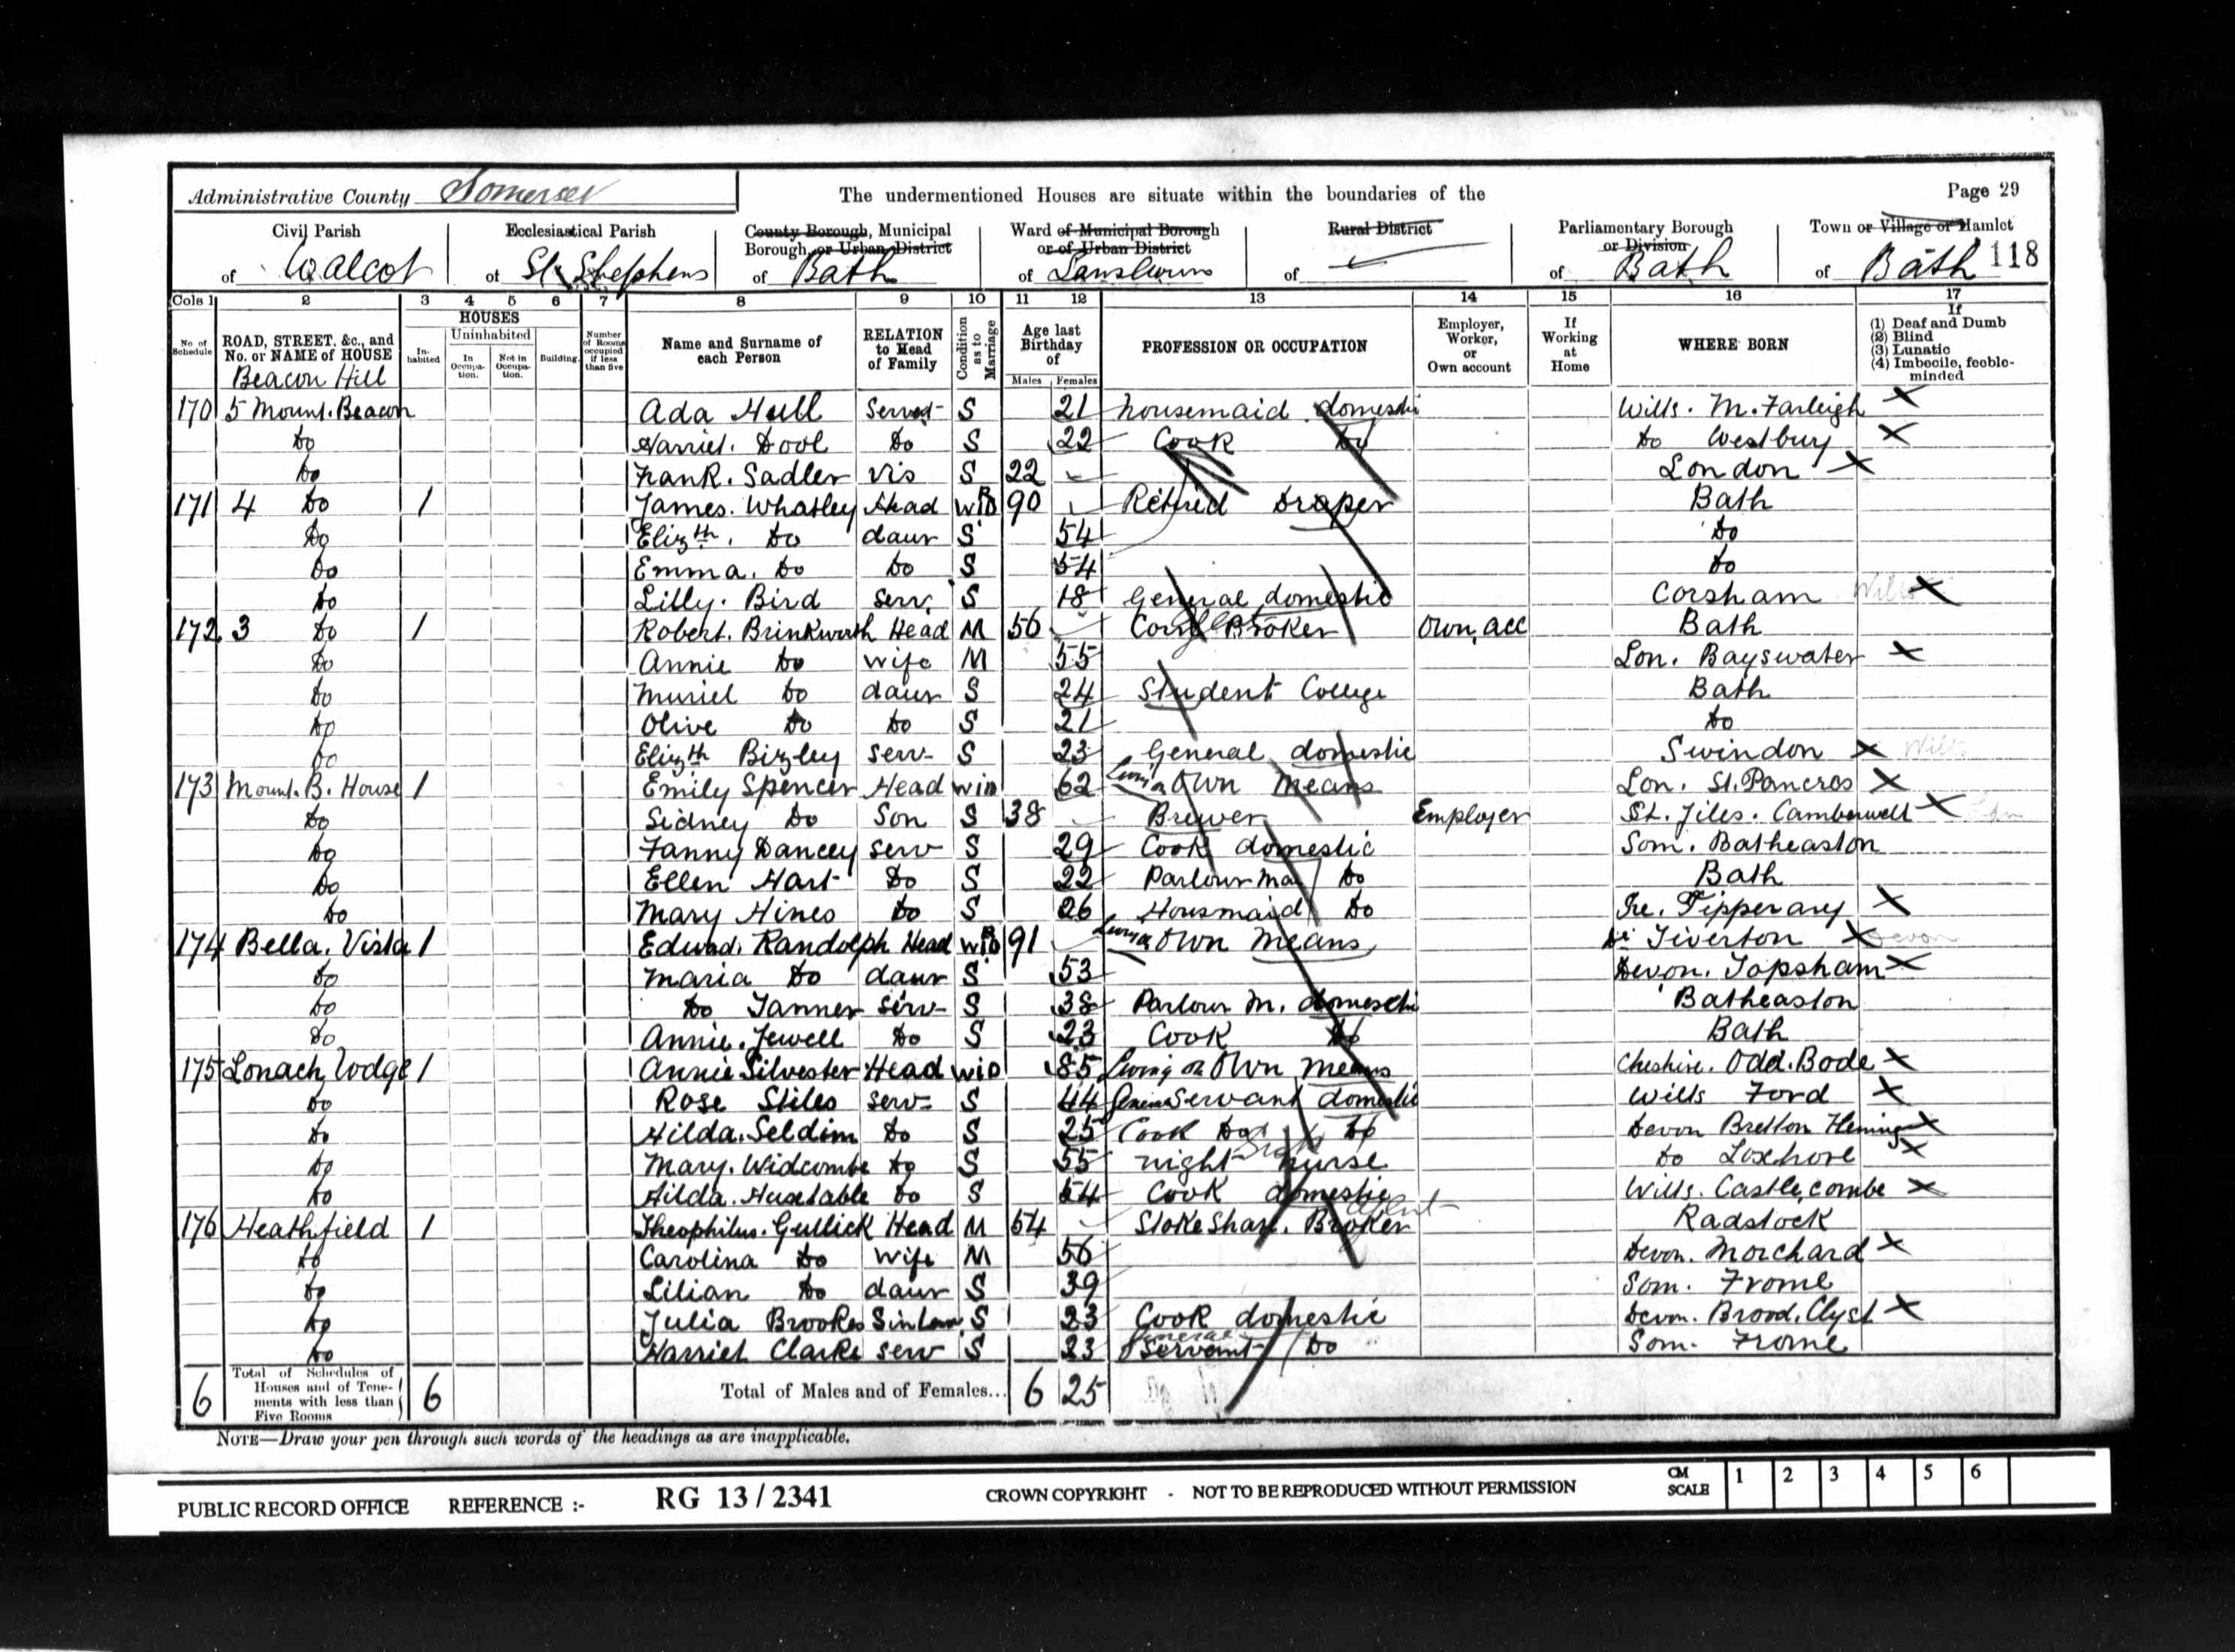 Administrative County Somerset
The undermentioned Houses are situate within the boundaries of the
Page 29
Civil Parish of Walcot
Ecclesiastical Parish of St Stephens
County Borough, Municipal Borough, or Urban District of Bath
Ward of Municipal Borough or of Urban District of Lansdown
Rural District of
Parliamentary Borough or Division of Bath
Town or Village or Hamlet of Bath 118
Cols 1 2 3 4 5 6 7 8 9 10 11 12 13 14 15 16 17
No of Schedule
ROAD, STREET, &c., and No. or NAME of HOUSE
Beacon Hill
HOUSES
In-habited
Uninhabited
In Occupa-tion.
Not in Occupa-tion.
Building.
Number of Rooms occupied if less than five
Name and Surname of each Person
RELATION to Head of Family
Condition as to Marriage
Age last Birthday of
Males Females
PROFESSION OR OCCUPATION
Employer, Worker, or Own account
If Working at Home
WHERE BORN
If
(1) Deaf and Dumb
(2) Blind
(3) Lunatic
(4) Imbecile, feeble-minded
170 5 Mount. Beacon Ada Hull S 21 housemaid domestic Wills. M. Farleigh X
Do Harriet. Dool Do S 22 Cook Do Do Westbury X
Do Frank. Sadler Vis S 22 London X
171 4 Do 1 James. Whatley Head 90 Retired Draper Bath
Do Elizth. Do daur S 54 Do
Do Emma. Do Do S 54 Do
Do Lilly. Bird serv. S 18 General domestic Corsham Wilts X
172 3 Do 1 Robert. Brinkworth Head M 56 Broker Own acc Bath
Do Annie Do wife M 55 Lon. Bayswater X
Do Muriel Do daur S 24 Student College Bath
Do Olive Do Do S 21 Do
Do Elizth Bizley serv S 23 General domestic Swindon X Wilts
173 Mount. B. House 1 Emily Spencer Head wid 62 Own means Lon. St. Pancras X
Do Sidney Do Son S 38 Brewer Employer St. Jiles. Camberwell X
Do Fanny Dancey serv S 29 Cook domestic Som. Batheaston
Do Ellen Hart Do S 22 Do Bath
Do Mary Hines Do S 26 Housmaid Do Ire. Tipperary X
174 Bella. Vista 1 Edwd. Randolph Head 91 Own means Tiverton X Devon
Do Maria Do daur S 53 Devon. Topsham X
Do Do Tanner serv S 38 Parlour M. domestic Batheaston
Do Annie. Jewell Do S 23 Cook Do Bath
175 Lonach Lodge 1 Annie Silvester Head wid 85 Living on Own means Cheshire. Odd. Bode X
Do Rose Stiles serv S 44 Servant domestic Wills Ford X
Do Hilda. Seldim Do S 25 Cook Do Devon Bretton Fleming X
Do Mary. Widcombe Do S 55 night nurse Do Loxhore X
Do Hilda. Huxtable Do S Cook domestic Wills. Castle combe X
176 Heathfield 1 Theophilus. Gullick Head M 54 Stoke Share. Broker Radstock
Do Carolina Do Wife M 56 Devon. Morchard X
Do Lilian Do daur S 39 Som. Frome
Do Julia Brookes S 23 Cook domestic Devon. Broad. Clyst X
Do Harriet Clarke serv S 23 General Servant Do Som. Frome
6 Total of Schedules of Houses and of Tene-ments with less than Five Rooms 6 Total of Males and of Females... 6 25
NOTE—Draw your pen through such words of the headings as are inapplicable.
PUBLIC RECORD OFFICE REFERENCE :- RG 13 / 2341 CROWN COPYRIGHT - NOT TO BE REPRODUCED WITHOUT PERMISSION CM SCALE 1 2 3 4 5 6